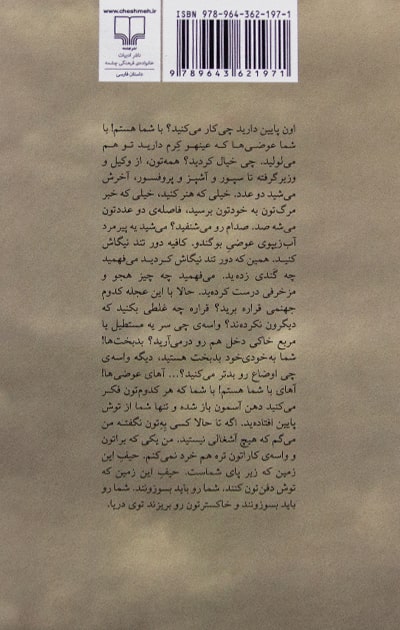 www.cheshmeh.ir
نشر چشمه
ناشر ادبیات
خانواده‌ی فرهنگی چشمه
داستان فارسی
ISBN 978-964-362-197-1
9 789643 621971
اون پایین دارید چی‌کار می‌کنید؟ با شما هستم! با
شما عوضی‌ها که عینهو کِرم دارید تو هم
می‌لولید. چی خیال کردید؟ همه‌تون، از وکیل و
وزیر گرفته تا سپور و آشپز و پروفسور، آخرش
می‌شید دو عدد. خیلی که هنر کنید، خیلی که خبر
مرگ‌تون به خودتون برسید، فاصله‌ی دو عددتون
می‌شه صد. صدام رو می‌شنفید؟ می‌شید یه پیرمرد
آب‌زیپوی عوضی بوگندو. کافیه دور تند نیگاش
کنید. همین که دور تند نیگاش کردید می‌فهمید
چه گَندی زده‌ید. می‌فهمید چه چیز هجو و
مزخرفی درست کرده‌ید. حالا با این عجله کدوم
جهنمی قراره برید؟ قراره چه غلطی بکنید که
دیگرون نکرده‌ند؟ واسه‌ی چی سر یه مستطیل یا
مربع خاکی دخل هم رو درمی‌آرید؟ بدبخت‌ها!
شما به‌خودی‌خود بدبخت هستید، دیگه واسه‌ی
چی اوضاع رو بدتر می‌کنید؟... آهای عوضی‌ها!
آهای با شما هستم! با شما که هر کدوم‌تون فکر
می‌کنید دهن آسمون باز شده و تنها شما از توش
پایین افتاده‌ید. اگه تا حالا کسی بِه‌تون نگفته من
می‌گم که هیچ آشغالی نیستید. من یکی که براتون
و واسه‌ی کاراتون تره هم خرد نمی‌کنم. حیفِ این
زمین که زیر پای شماست. حیفِ این زمین که
توش دفن‌تون کنند. شما رو باید بسوزونند. شما رو
باید بسوزونند و خاکسترتون رو بریزند توی دریا.